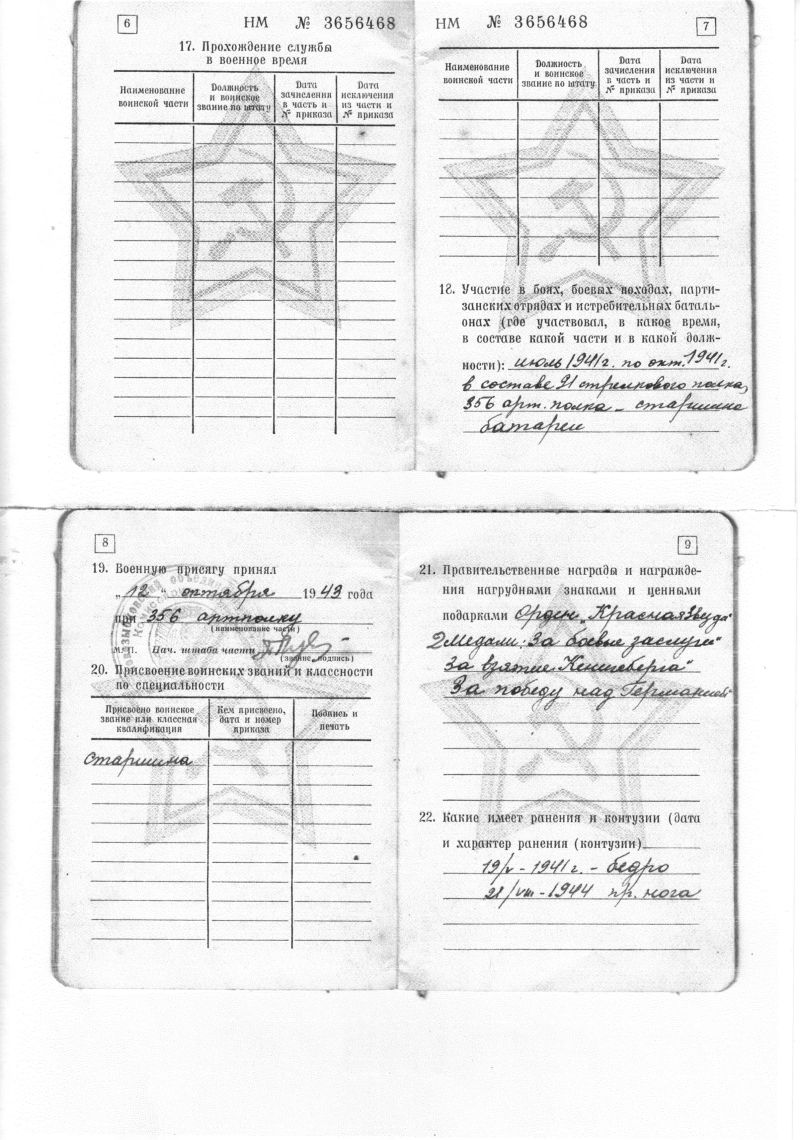 6
НМ № 3656468
17. Прохождение службы
в военное время
Наименование воинской части
Должность и воинское звание по штату
Дата зачисления в часть и № приказа
Дата исключения из части и № приказа
НМ № 3656468
7
Наименование воинской части
Должность и воинское звание по штату
Дата зачисления в часть и № приказа
Дата исключения из части и № приказа
18. Участие в боях, боевых походах, парти-
занских отрядах и истребительных баталь-
онах (где участвовал, в какое время,
в составе какой части и в какой долж-
ности): июль 1941г. по окт. 1941г.
в составе 91 стрелкового полка,
356 арт. полка – старшина
батареи
8
19. Военную присягу принял
„12“ октября 1943 года
при 356 артполку
(наименование части)
М. П. Нач. штаба части
(звание, подпись)
20. Присвоение воинских званий и классности
по специальности
Присвоено воинское звание или классная квалификация
Кем присвоено, дата и номер приказа
Подпись и печать
старшина
9
21. Правительственные награды и награжде-
ния нагрудными знаками и ценными
подарками Орден „Красная Звезда“
2 Медали: За боевые заслуги“
За взятие Кенигсберга“
За победу над Германией“
22. Какие имеет ранения и контузии (дата
и характер ранения (контузии)
19/V - 1941 г. - бедро
21/VIII - 1944 пр. нога